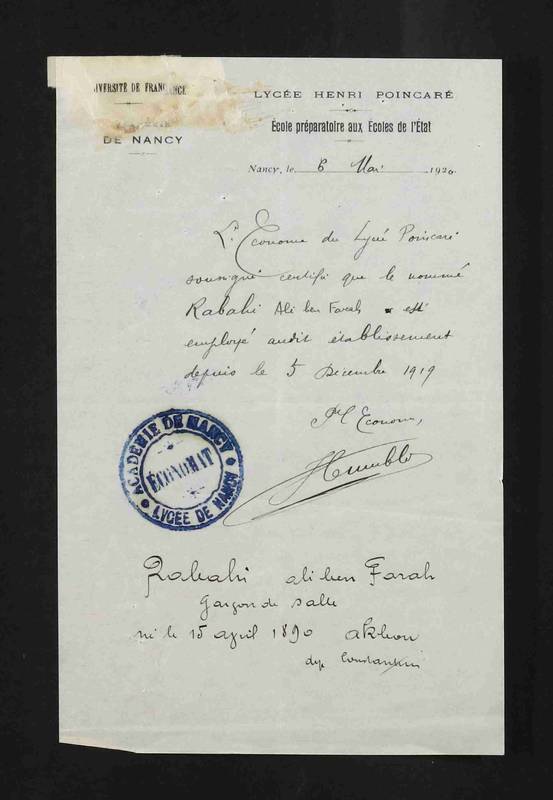 UNIVERSITÉ DE FRANCE
DE NANCY
LYCÉE HENRI POINCARÉ
École préparatoire aux Écoles de l'État
Nancy, le 6 Mai 1920
L'Econome du Lycée Poincaré
soussigné certifie que le nommé
Rabahi Ali ben Farah est
employé audit établissement
depuis le 5 Décembre 1919
Pr l'Econome,
ACADÉMIE DE NANCY
ÉCONOMAT
LYCÉE DE NANCY
Rabahi ali ben Farah
garçon de salle
né le 15 april 1890